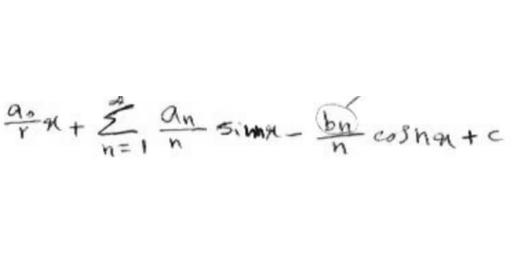 a₀/r x + ∞∑n=1 aₙ/n sinnx - bₙ/n cosnx + c